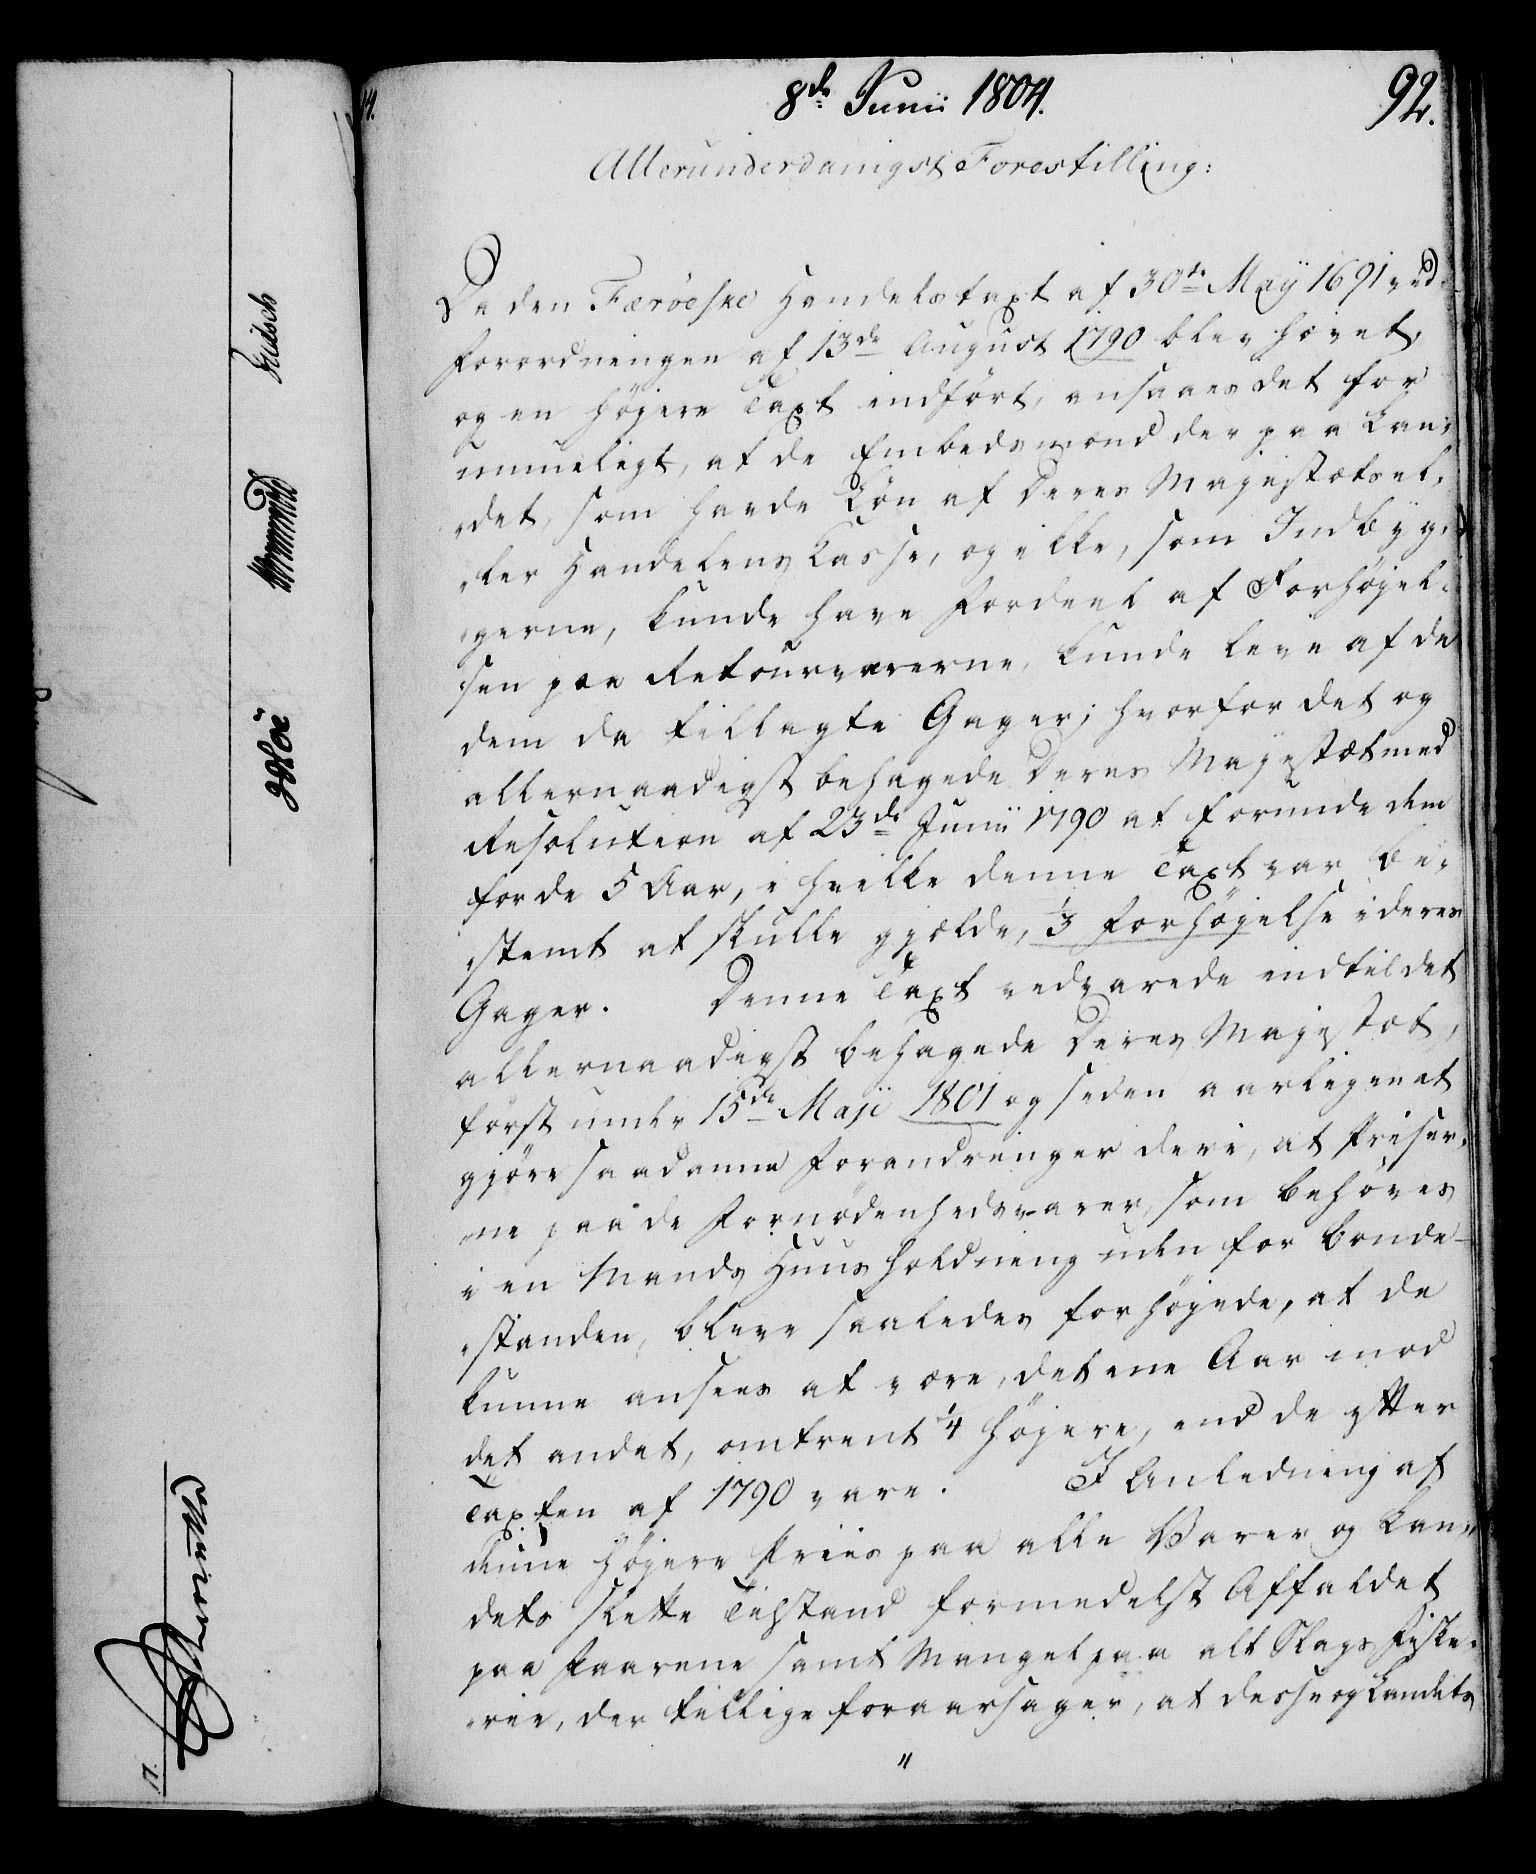 8de Junii 1804.
92.
Allerunderdanigst Forestilling:
Da den Færöeske Handelstaxt af 30te Maÿ 1691 ved
Forordningen af 13de August 1790 blev hævet,
og en höjere Taxt indfört, ansaaes det for
umueligt, at de Embedsmænd der paa Lan-
det, som havde Lön af Deres Majestæts el-
ler Handelens Casse, og ikke, som Indbyg-
gerne, kunde have Fordeel af Forhöjel-
sen paa Retourvarerne, kunde leve af de
dem da tillagte Gager; hvorfor det og
allernaadigst behagede Deres Majestæt med
Resolution af 23de Junii 1790 at forunde dem
for de 5 Aar, i hvilke denne Taxt var be-
stemt at skulle gjælde, 1/3 Forhöjelse i deres
Gager. Denne Taxt vedvarede indtil det
allernaadigst behagede Deres Majestæt,
först under 15de Maji 1801 og siden aarligen at
gjöre saadanne Forandringer deri, at Priser-
ne paa de Fornödenhedsvarer, som behöves
i en Mands Huusholdning uden for Bonde-
standen, bleve saaledes forhöjede, at de
kunne ansees at være, det ene Aar mod
det andet, omtrent 1/4 höjere, end de efter
Taxten af 1790 vare. I Anledning af
denne höjere Priis paa alle Varer og Lan-
dets slette Tilstand formedelst Affaldet
paa Faarene samt Mangel paa alt Slags Fiske-
rie, der tillige foraarsager, at desse og Landets
"